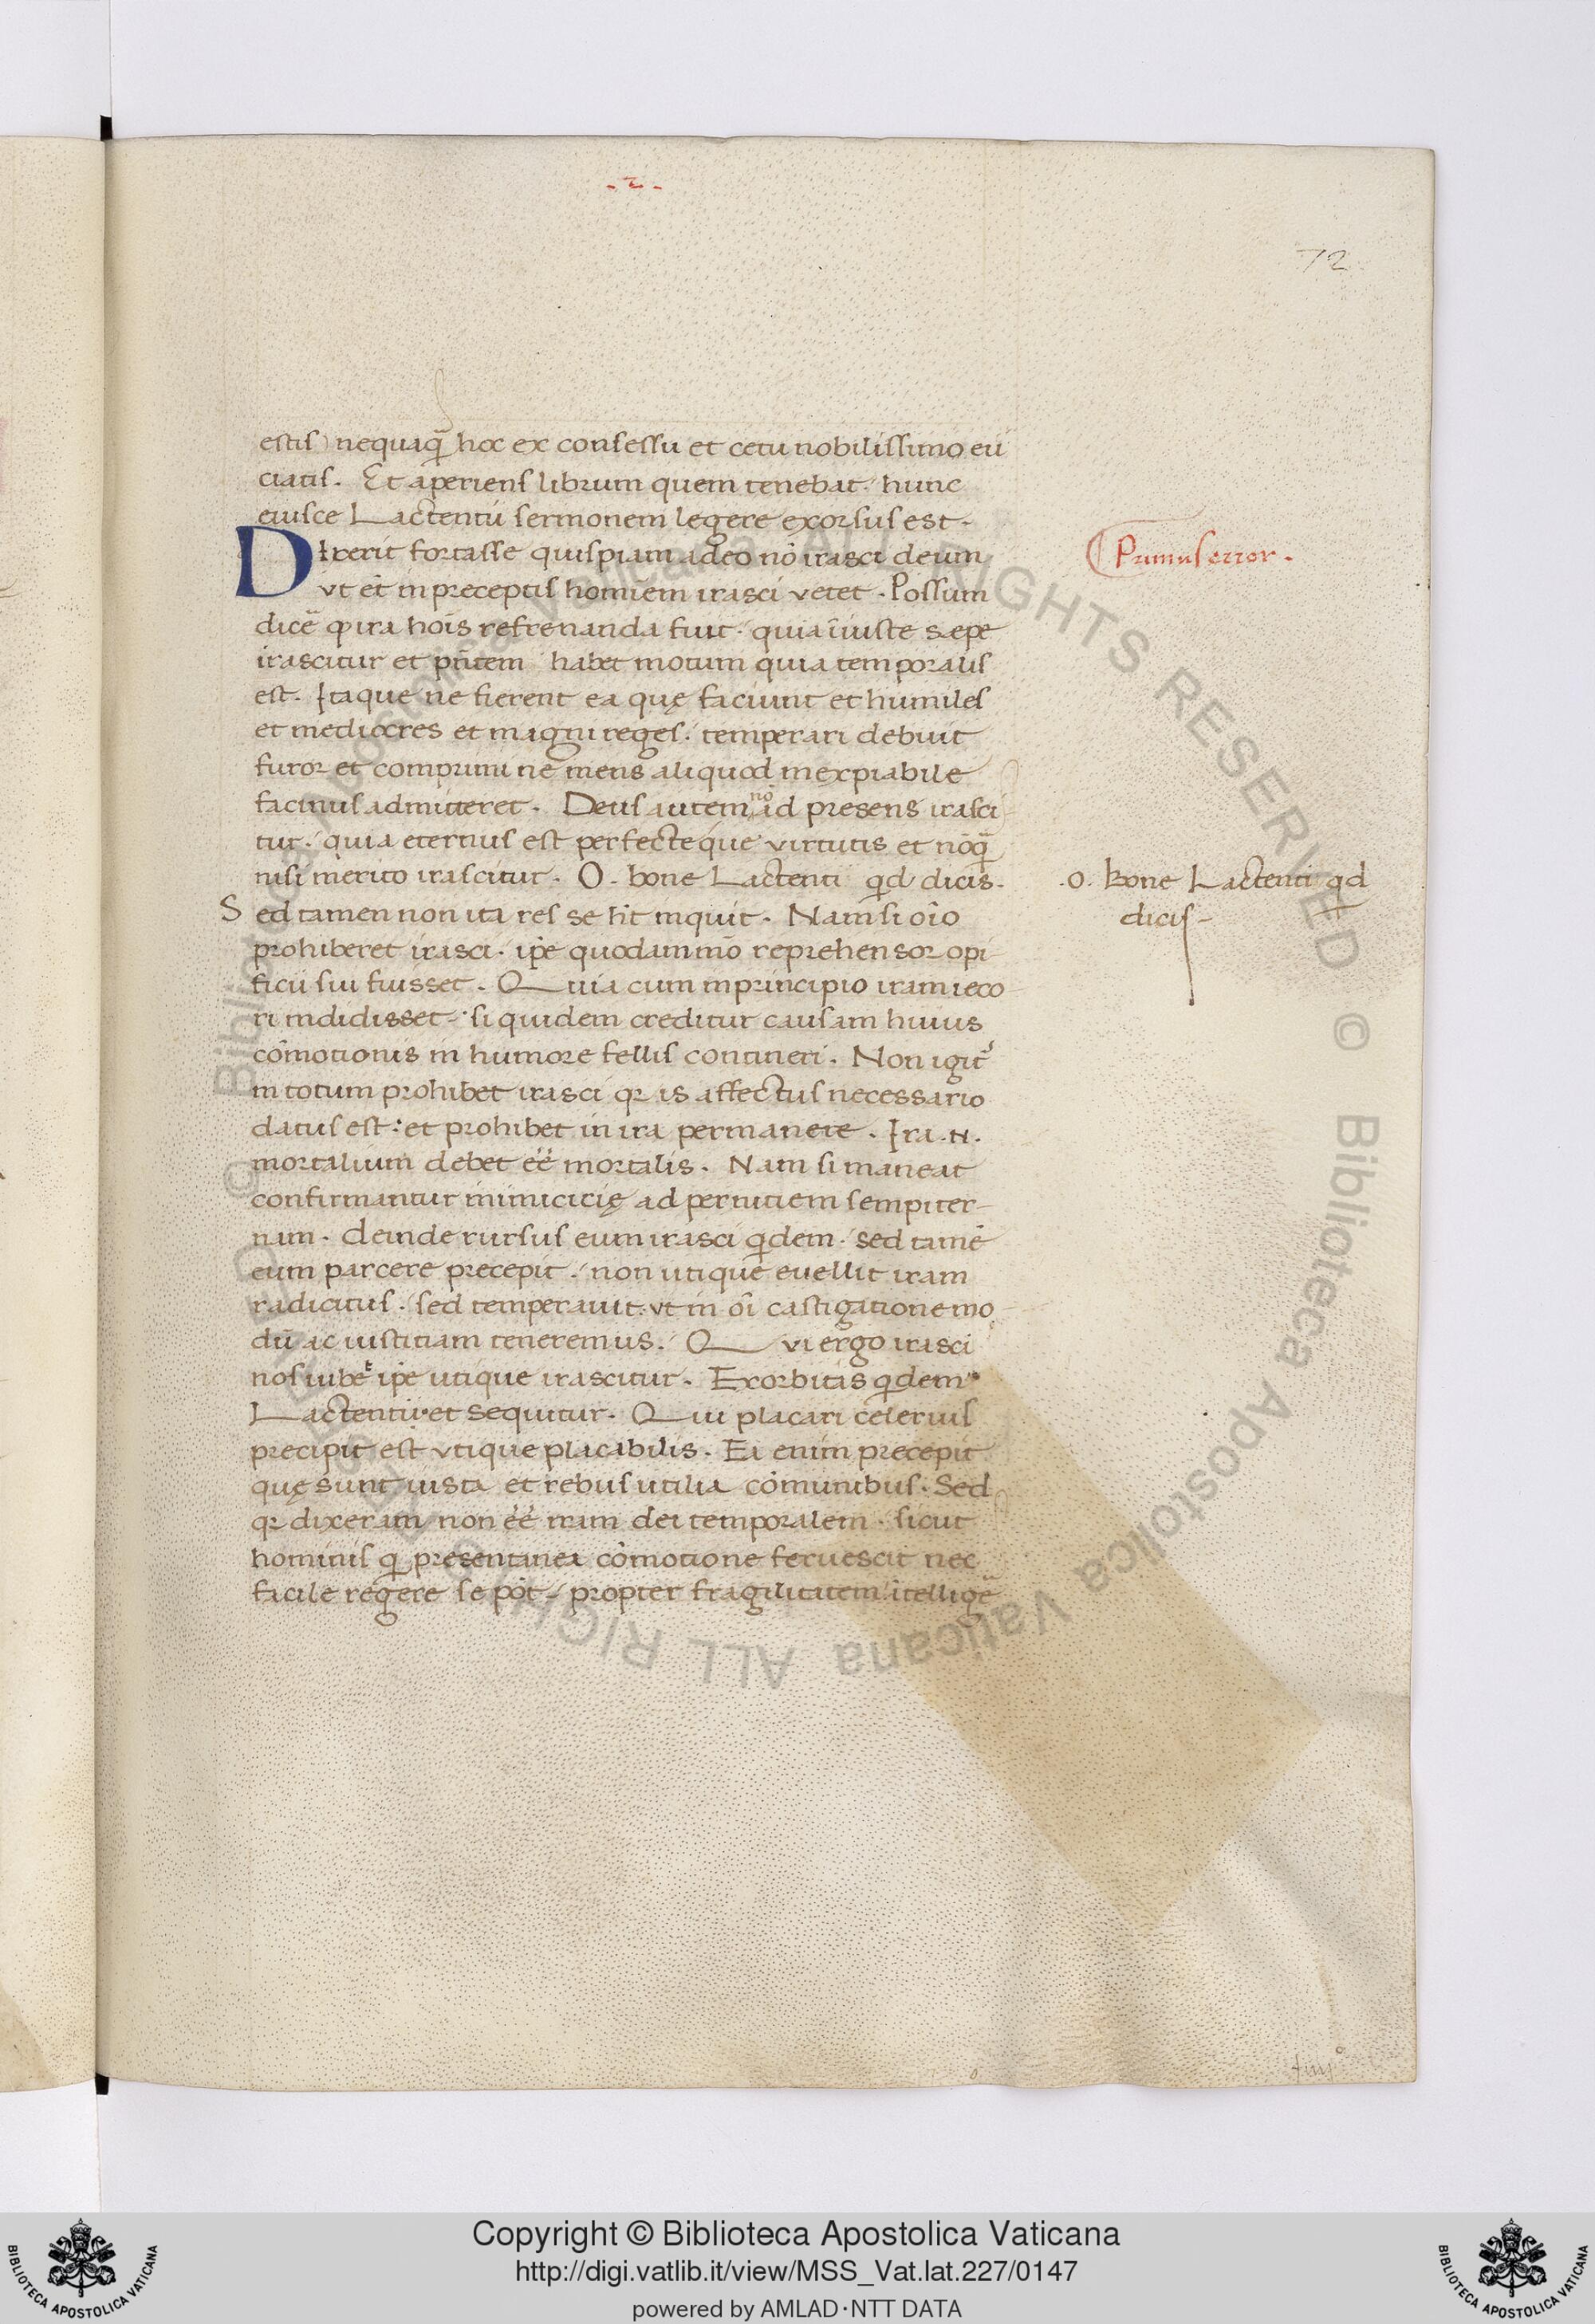 - 2 -
72
estis) nequaq̃ hoc ex consessu et cetu nobilissimo eii
ciatis. Et aperiens librum quem tenebat / hunc
eiusce Lactentii sermonem legere exorsus est.
Dixerit fortasse quispiam adeo nō irasci deum
Primus error.
vt ēt in preceptis hominem irasci vetet. Possum
dicē ꝙ ira hoīs refrenanda fuit. quia īiuste sepe
irascitur et pñtem habet motum quia temporalis
est. Itaque ne fierent ea quę faciunt et humiles
et mediocres et magni reges. temperari debuit
furor et comprimi ne mens aliquod inexpiabile
facinus admitteret. Deus autem nō ad presens irasci
tur / quia eternus est perfecteque virtutis et nōq̃
nisi merito irascitur. O. bone Lactenti qd dicis.
.o. bone Lactenti qd
dicis-
Sed tamen non ita res se hт̄ inquit. Nam si oīo
prohiberet irasci. ip̄e quodammō reprehensor opi
ficii sui fuisset. Quia cum in principio iram ieco
ri indidisset / si quidem creditur causam huius
cōmotionis in humore fellis contineri. Non igit̃
in totum prohibet irasci qr is affectus necessario
datus est: et prohibet in ira permanere. Ira .n.
mortalium debet ēē mortalis. Nam si maneat
confirmantur inimicicię ad pernitiem sempiter-
nam. deinde rursus eum irasci qdem / sed tamē
eum parcere precepit / non utique euellit iram
radicitus. sed temperauit. vt in oī castigatione mo
dū ac iustitiam teneremus. Qui ergo irasci
nos iubet ip̄e utique irascitur. Exorbitas qdem
Lactenti. et sequitur. Qui placari celerius
precipit est vtique placabilis. Ea enim precepit
quę sunt iusta et rebus utilia cōmunibus. Sed
qr dixeram non ēē iram dei temporalem. sicut
hominis q presentanea cōmotione feruescit nec
facile regere se pōt / propter fragilitatem ītelligē
Copyright © Biblioteca Apostolica Vaticana
http://digi.vatlib.it/view/MSS_Vat.lat.227/0147
powered by AMLAD·NTT DATA